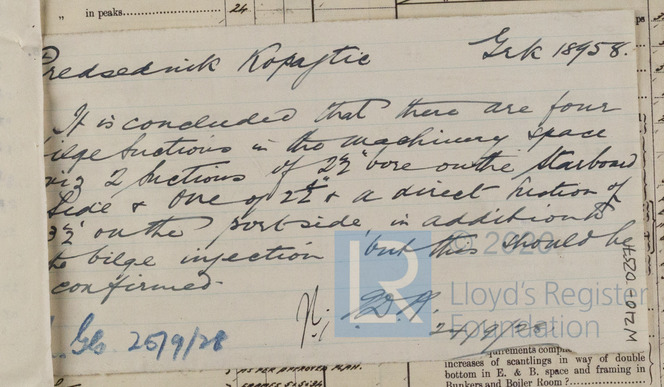 " in peaks. 24
Predsednik Kopajtic Grk 18958.
It is concluded that there are four
bilge suctions in the machinery space
viz 2 suctions of 2½" bore on the Starboard
Side & one of 2½ & a direct suction of
3½" on the portside in addition to
to bilge injection but this should be
confirmed.
© 2020
LR
Lloyd's Register
Foundation
24/9/28
Gls 25/9/28
AS PER APPROVED PLAN.
requirements
increases of scantlings in way of double
bottom in E. & B. space and framing in
Bunkers and Boiler Room?